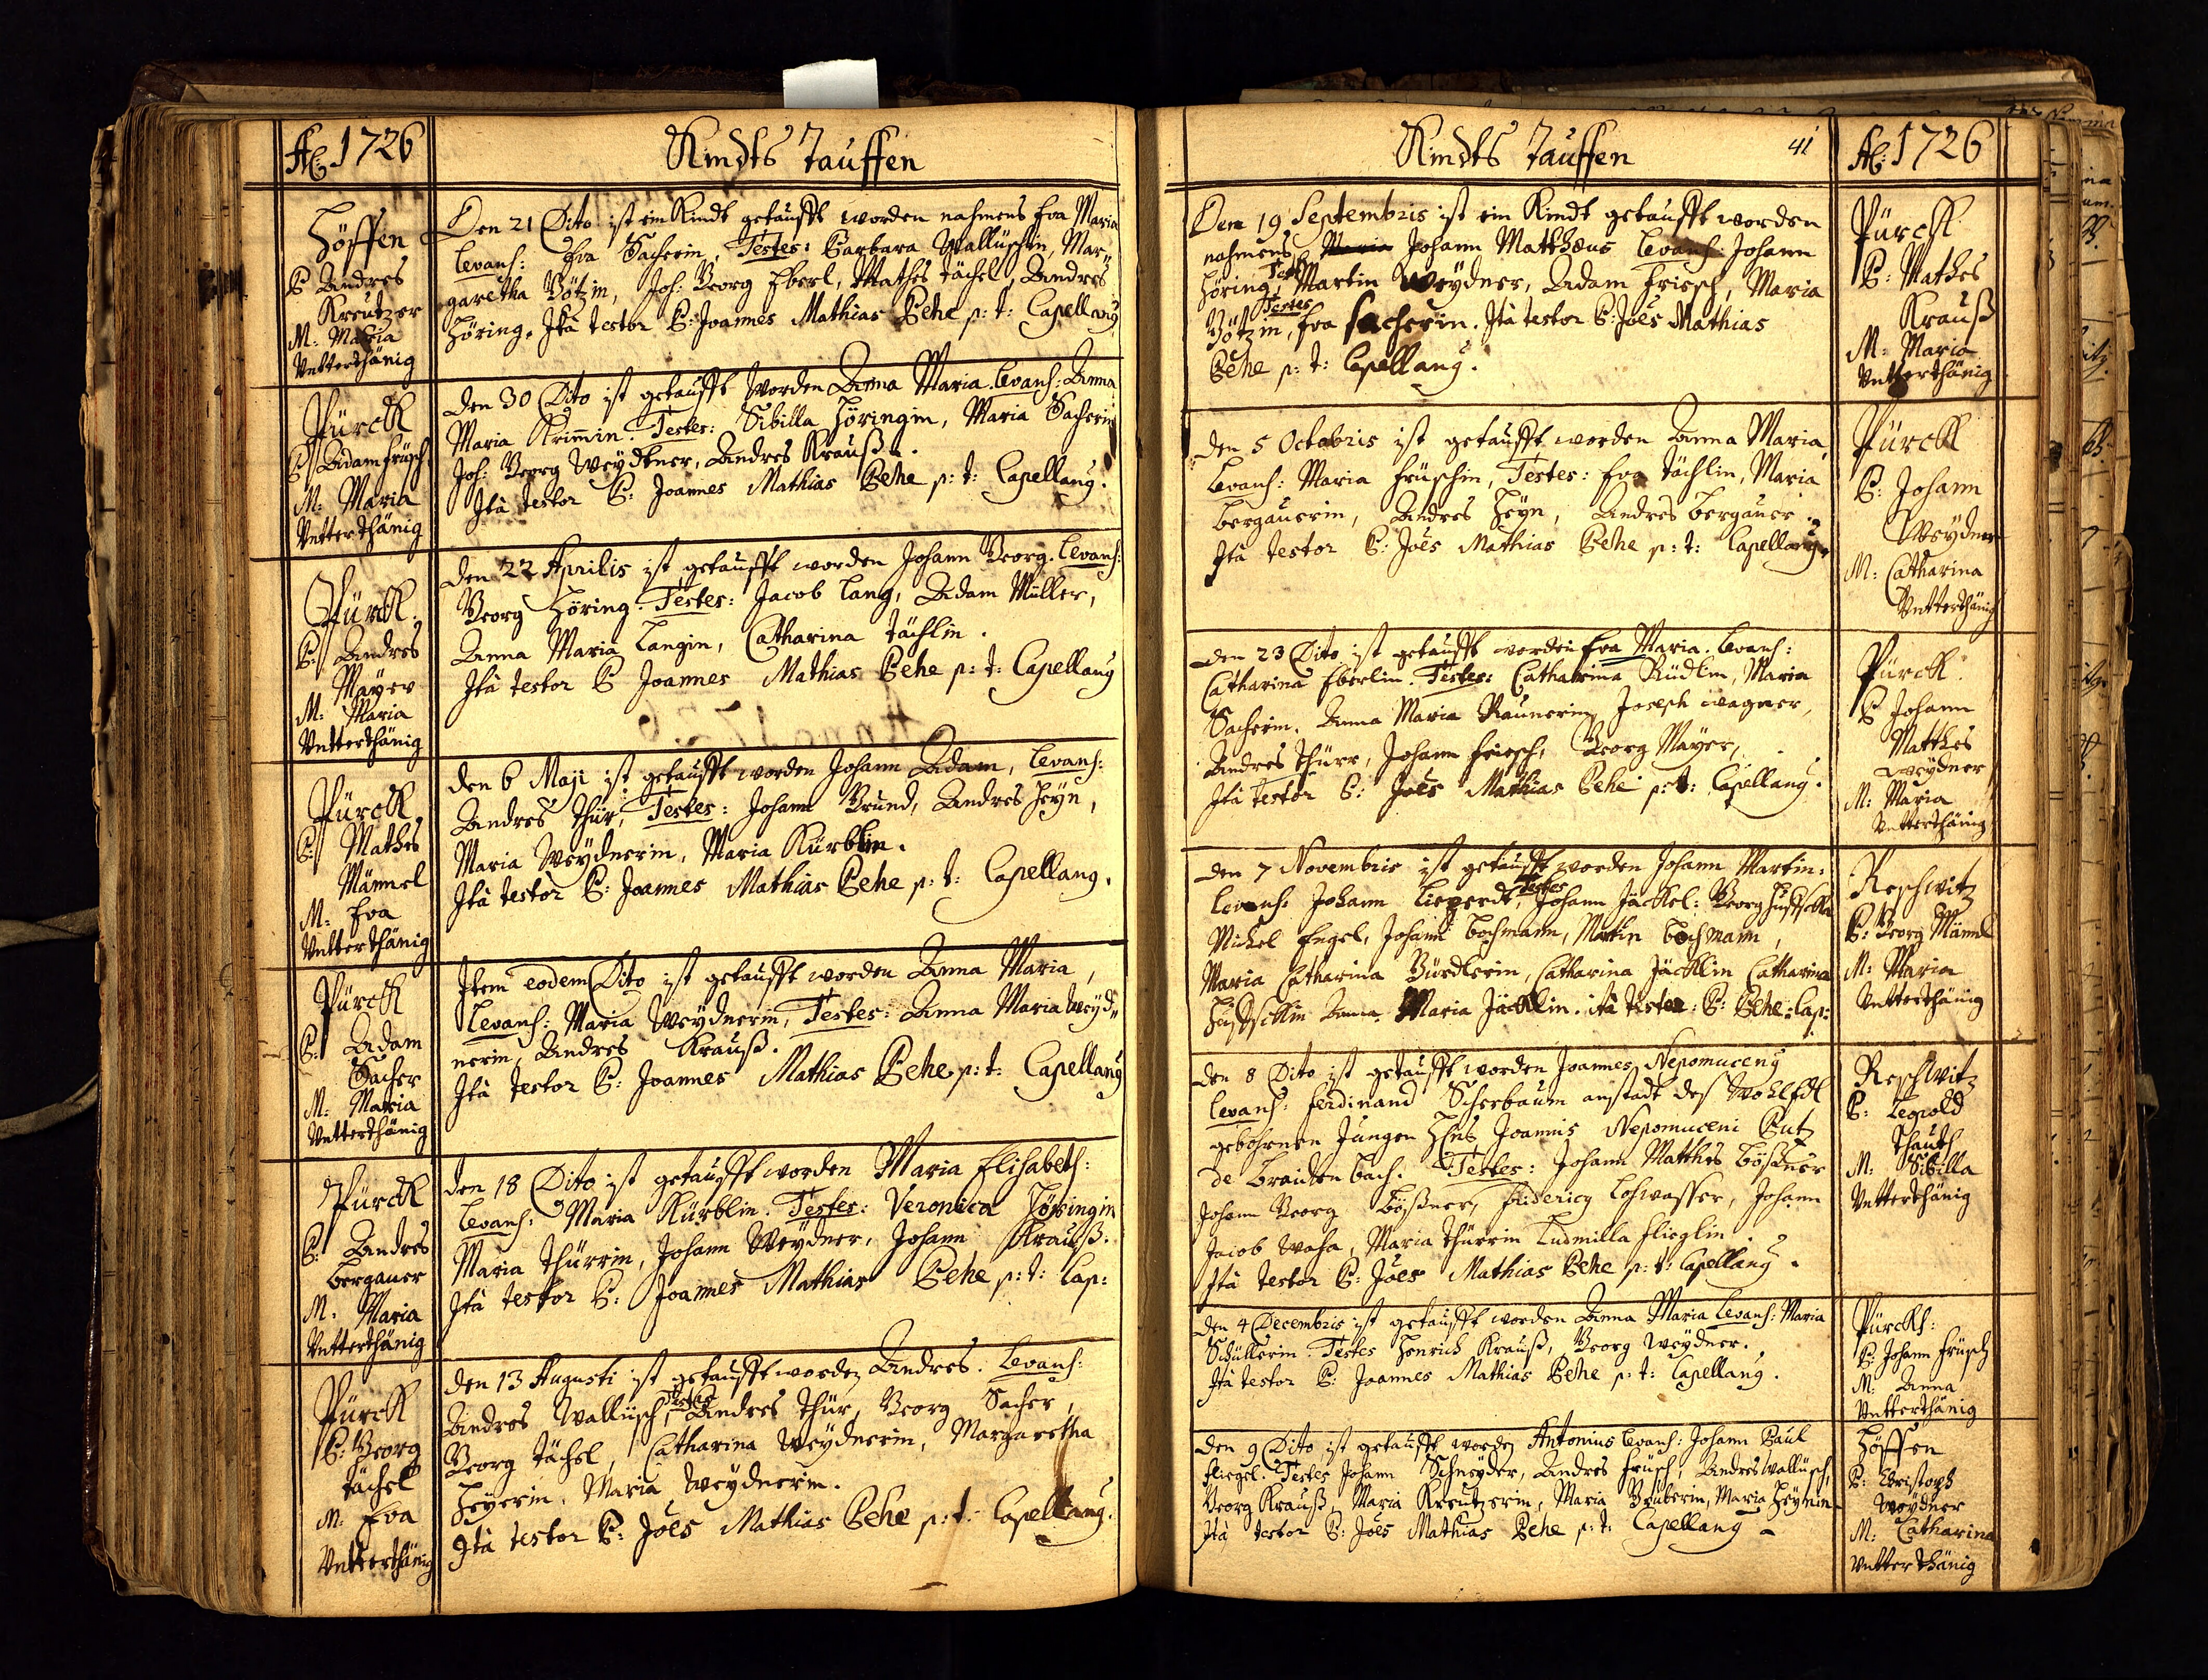 Aō: 1726
Kindts Tauffen
Höffen
P Andres
Kreutzer
M: Maria
Vntterthänig
Den 21 Dito ist ein Kindt getaufft worden nahmens Eva Maria
Levans: Eva Sacherin, Testes: Barbara Wallüschin, Mar„
garetha Götzin, Joh: Georg Eberl, Mathes Tächel, Andres
Höring. Ità testor P: Joannes Mathias Behe p: t: Capellanꝯ
Pürckh
P Adam Früsch
M: Maria
Vntterthänig
Den 30 Dito ist getaufft worden Anna Maria. Levans: Anna
Maria Krimin. Testes: Sibilla Höringin, Maria Sacherin
Joh: Georg Weydtner, Andres Krauß.
Ità testor P: Joannes Mathias Behe p: t: Capellanꝯ.
Pürckh.
P: Andres
Mayer
M: Maria
Vntterthänig
Den 22 Aprilis ist getaufft worden Johann Georg. Levans:
Georg Höring. Testes: Jacob Lang, Adam Müller,
Anna Maria Langin, Catharina Tächlin.
Ità testor P Joannes Mathias Behe p: t: Capellanꝯ
Pürckh,
P: Mathes
Männel
M: Eva
Vntterthänig
Den 6 Maji ist getaufft worden Johann Adam, Levans:
Andres Thür, Testes: Johann Grund, Andres Heyn,
Maria Weydnerin, Maria Kürblin.
Ità testor P: Joannes Mathias Behe p: t: Capellanꝯ.
Pürckh
P: Adam
Sacher
M: Maria
Vntterthänig
Item eodem Dito ist getaufft worden Anna Maria,
Levans: Maria Weydnerin, Testes: Anna Maria Weyd„
nerin, Andres Krauß.
Ità testor P: Joannes Mathias Behe p: t: Capellanꝯ
Pürckh
P: Andres
Bergauer
M: Maria
Vntterthänig
Den 18 Dito ist getaufft worden Maria Elisabeth:
Levans: Maria Kürblin. Testes: Veronica Höringin
Maria Thürrin, Johann Weydner, Johann Krauß.
Ità testor P: Joannes Mathias Behe p: t: Cap:
Pürckh
P: Georg
Tächel
M: Eva
Vntterthänig
Den 13 Augusti ist getaufft worden Andres. Levans:
Andres Wallüsch, Testes Andres Thür, Georg Sacher,
Georg Tächel, Catharina Weydnerin, Margaretha
Heyerin, Maria Weydnerin.
Ità testor P: Joēs Mathias Behe p: t: Capellanꝯ.
Kindts Tauffen
41
Aō: 1726
Den 19 Septembris ist ein Kindt getaufft worden
nahmens Maria Johann Matthæus Levans: Johann
Höring, Test Martin Weydner, Adam Friesch, Maria
Götzin, Testes Eva Sacherin. Ità testor P: Joēs Mathias
Behe p: t: Capellanꝯ.
Pürckh
P: Mathes
Krauß
M: Maria
Vntterthänig
Den 5 Octobris ist getaufft worden Anna Maria,
Levans: Maria Früschin, Testes: Eva Tächlin, Maria
Bergauerin, Andres Heyn, Andres Bergauer.
Ità testor P: Joēs Mathias Behe p: t: Capellanꝯ.
Pürckh
P: Johann
Weydner
M: Catharina
Vntterthänig
Den 23 Dito ist getaufft worden Eva Maria. Levans:
Catharina Eberlin. Testes: Catharina Rüdlin, Maria
Sacherin. Anna Maria Raunerin, Joseph Wagner,
Andres Thürr, Johann Friesch, Georg Mayer,
Ità testor P: Joēs Mathias Behe p: t: Capellanꝯ.
Pürckh.
P Johann
Matthes
Weydner
M: Maria
Vntterthänig
Den 7 Novembris ist getaufft worden Johann Martin:
Levans: Johann Liepperdt, Testes Johann Jäckel: Georg
Michel Engel, Johann Bochmann, Martin Bochmann,
Maria Catharina Bürdlerin, Catharina Jäcklin Catharina
Anna Maria Jäcklin. ità testor: P: Behe: Cap:
Reschwitz
P: Georg Männl
M: Maria
Vntterthänig
Den 8 Dito ist getaufft worden Joannes Nepomucenꝯ
Levans: Ferdinand Scherbaum anstadt deß Wohl Edl
gebohrnen Jungen Hhrn Joannis Nepomuceni Putz
de Braitenbach. Testes: Johann Matthes Bößner
Johann Georg Bößner, Fridericꝯ Loßwasser, Johann
Jacob Waha, Maria Thürrin Ludmilla Flieglin.
Ità testor P: Joēs Mathias Behe p: t: Capellanꝯ.
Reschwitz
P: Leopold
Thauth
M: Sibilla
Vntterthänig
Den 4 Decembris ist getaufft worden Anna Maria Levans: Maria
Schüllerin. Testes Henrich Krauß, Georg Weydner.
Ità testor P: Joannes Mathias Behe p: t: Capellanꝯ.
Pürckh:
P: Johann Früsch
M: Anna
Vntterthänig
Den 9 Dito ist getaufft worden Antonius Levans: Johann Paul
Fliegel. Testes Johann Schneyder, Andres Früsch, Andres Wallüsch,
Georg Krauß, Maria Kreutzerin, Maria Gruberin, Maria Heynin
Ità testor P: Joēs Mathias Behe p: t: Capellanꝯ
Höffen
P: Christoph
Weydner
M: Catharina
Vntterthänig